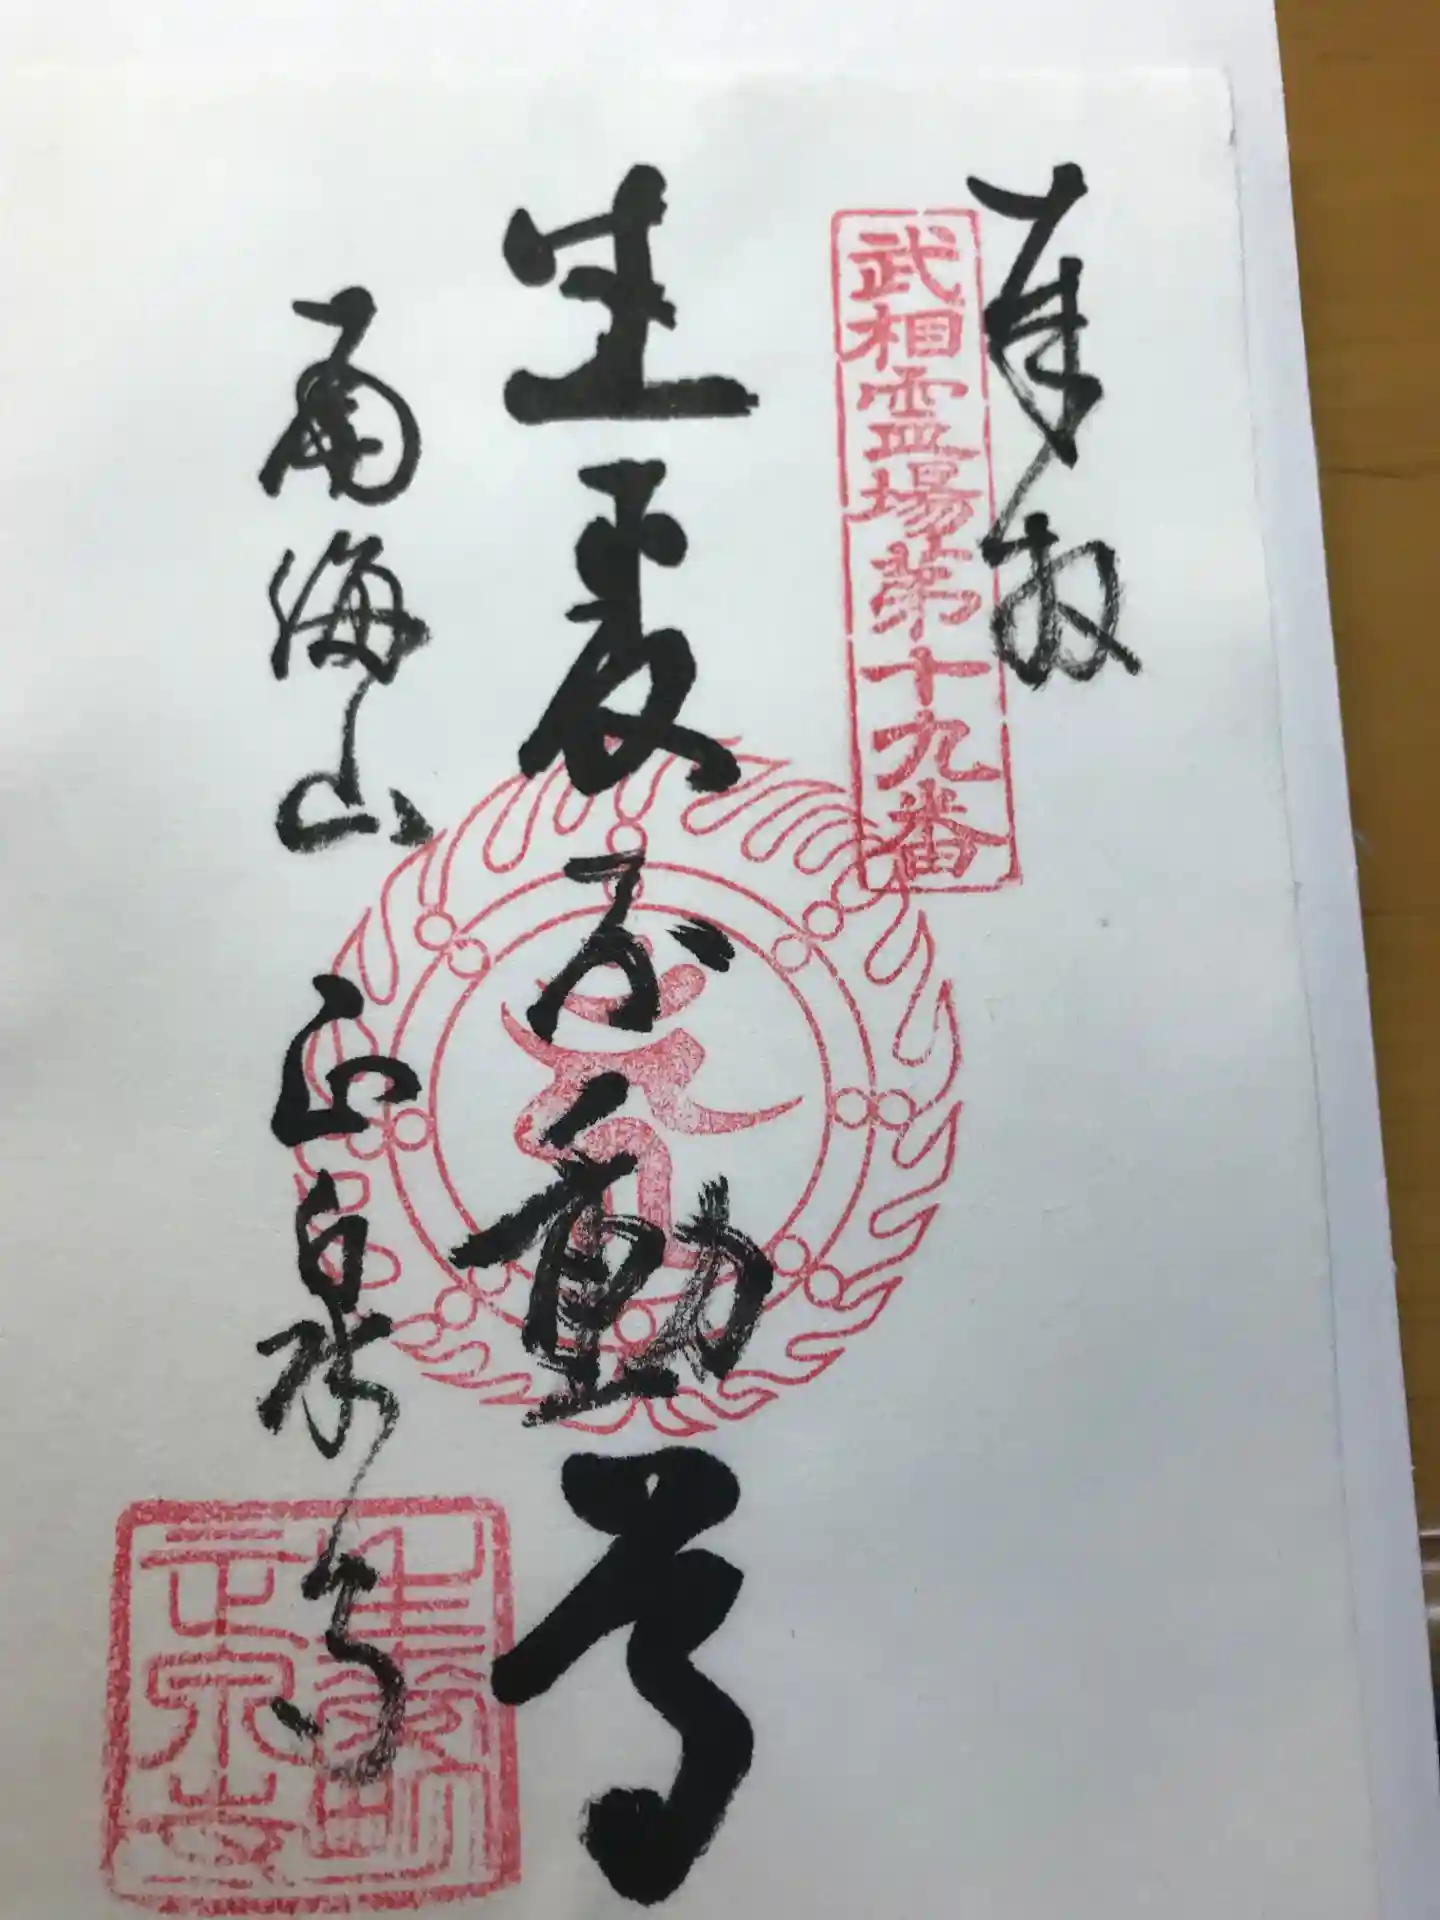 奉拝
武相霊場第十九番
生麦不動尊
南海山 正泉寺
正泉寺